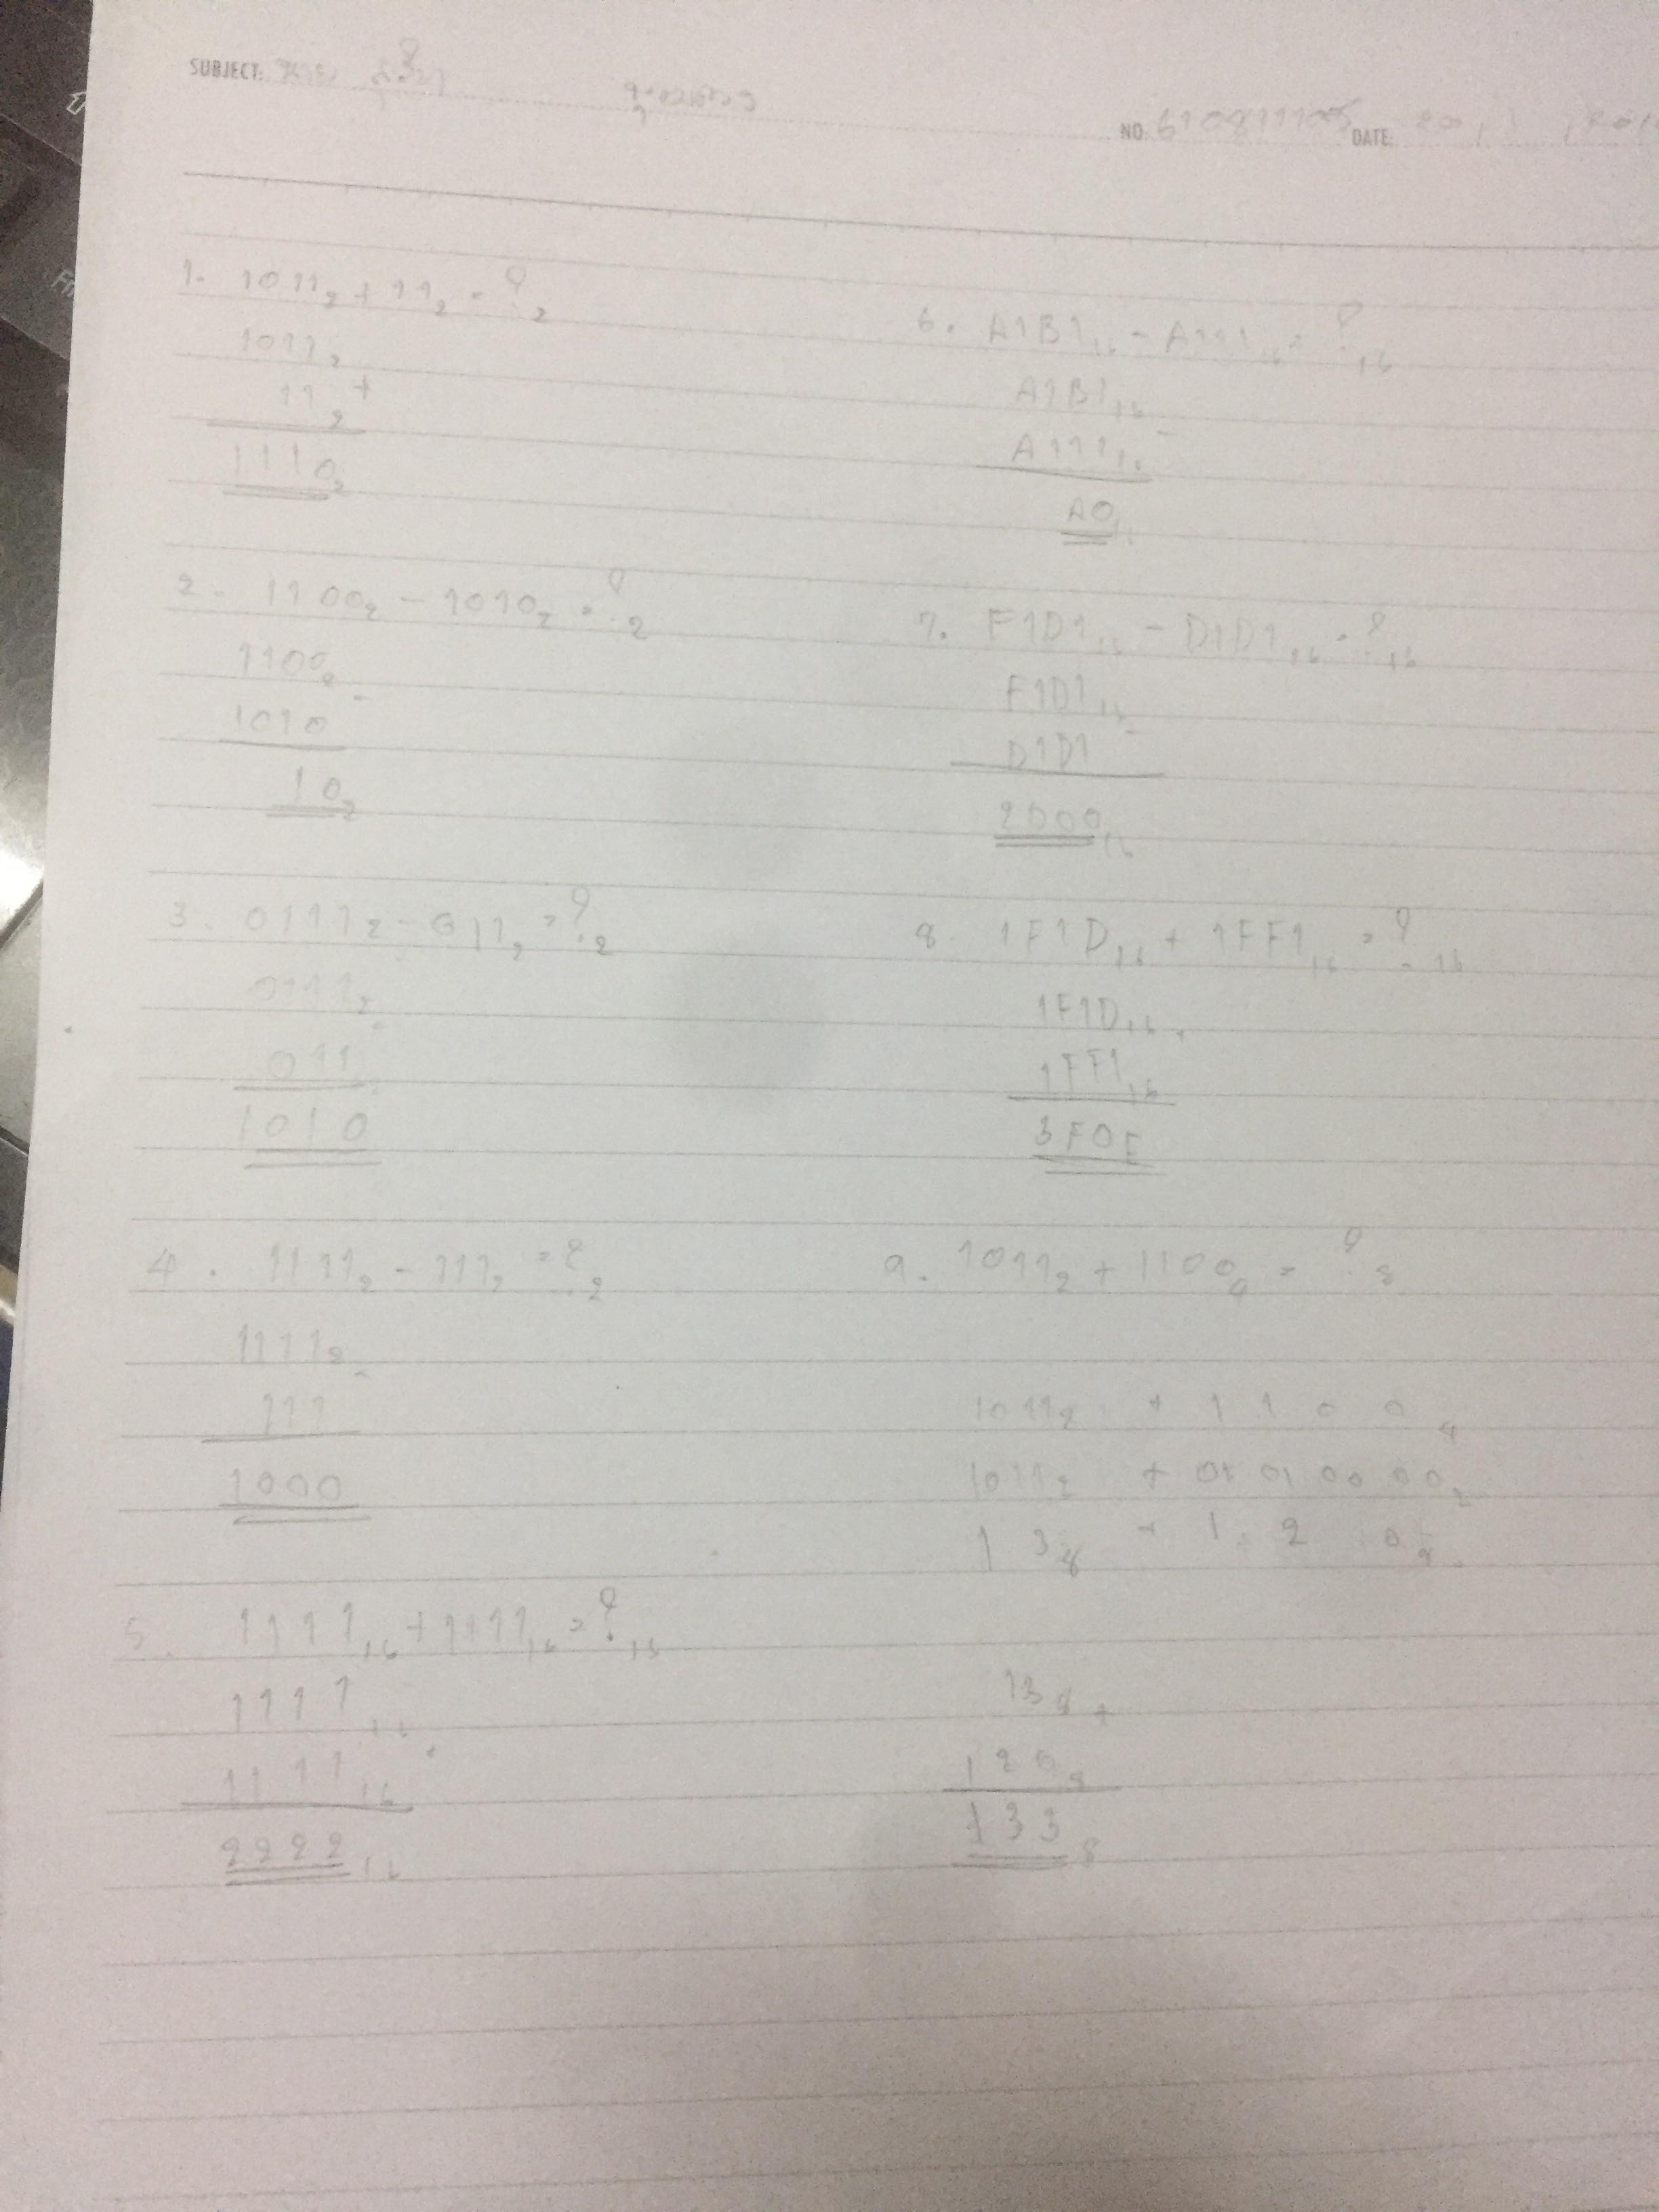 SUBJECT: นาย
NO. 610811105 DATE. 20
1. 1011₂ + 11₂ = ?₂
1011₂
11₂ +
1110₂
2. 1100₂ - 1010₂ = ?₂
1100₂ -
1010
10₂
3. 0111₂ - 011₂ = ?₂
0111₂
011
1010
4. 1111₂ - 111₂ = ?₂
1111₂ -
111
1000
5. 1111₁₆ + 1111₁₆ = ?₁₆
1111₁₆
1111₁₆
2222₁₆
6. A1B1₁₆ - A111₁₆ = ?₁₆
A1B1₁₆ -
A111₁₆
A0₁₆
7. F1D1₁₆ - D1D1₁₆ = ?₁₆
F1D1₁₆ -
D1D1
2000₁₆
8. 1F1D₁₆ + 1FF1₁₆ = ?₁₆
1F1D₁₆ +
1FF1₁₆
3F0E
9. 1011₂ + 1100₄ = ?₈
1011₂ + 1 1 0 0₄
1011₂ + 01 01 00 00₂
1 3₈ + 1 2 0₈
13₈ +
120₈
133₈